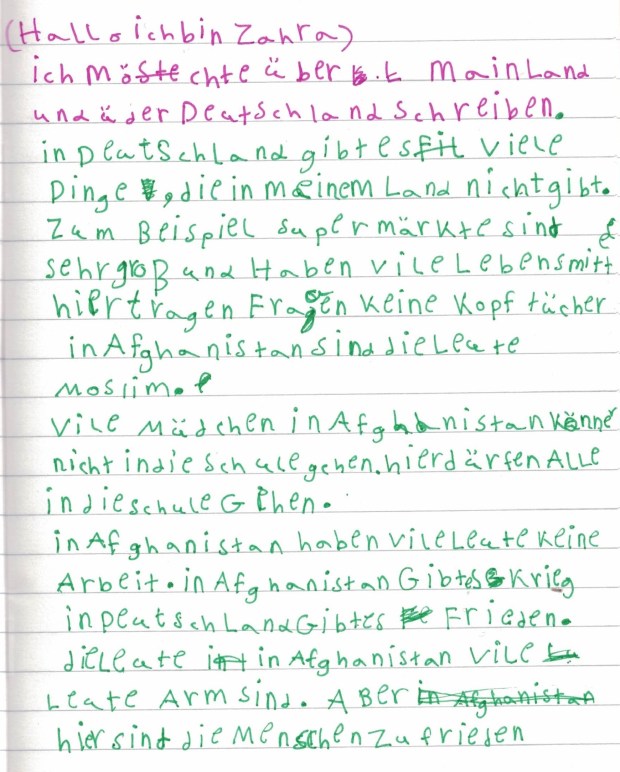 (Hallo ich bin Zahra)
ich möchte über mein Land
und über Deutschland schreiben.
in Deutschland gibt es viele
Dinge, die in meinem Land nicht gibt.
Zum Beispiel supermärkte sind
sehr groß und Haben vile Lebensmitt
hier tragen Fragen keine Kopf tücher
in Afghanistan sind die Leute
Moslim.
Vile Mädchen in Afghanistan könne
nicht in die Schule gehen. hier dürfen ALLE
in die schule Gehen.
in Afghanistan haben vile Leute keine
Arbeit. in Afghanistan Gibt es Krieg
in Deutschland Gibt es Frieden.
die Leute in Afghanistan vile
Leute Arm sind. ABer
hier sind die Menschen Zufrieden